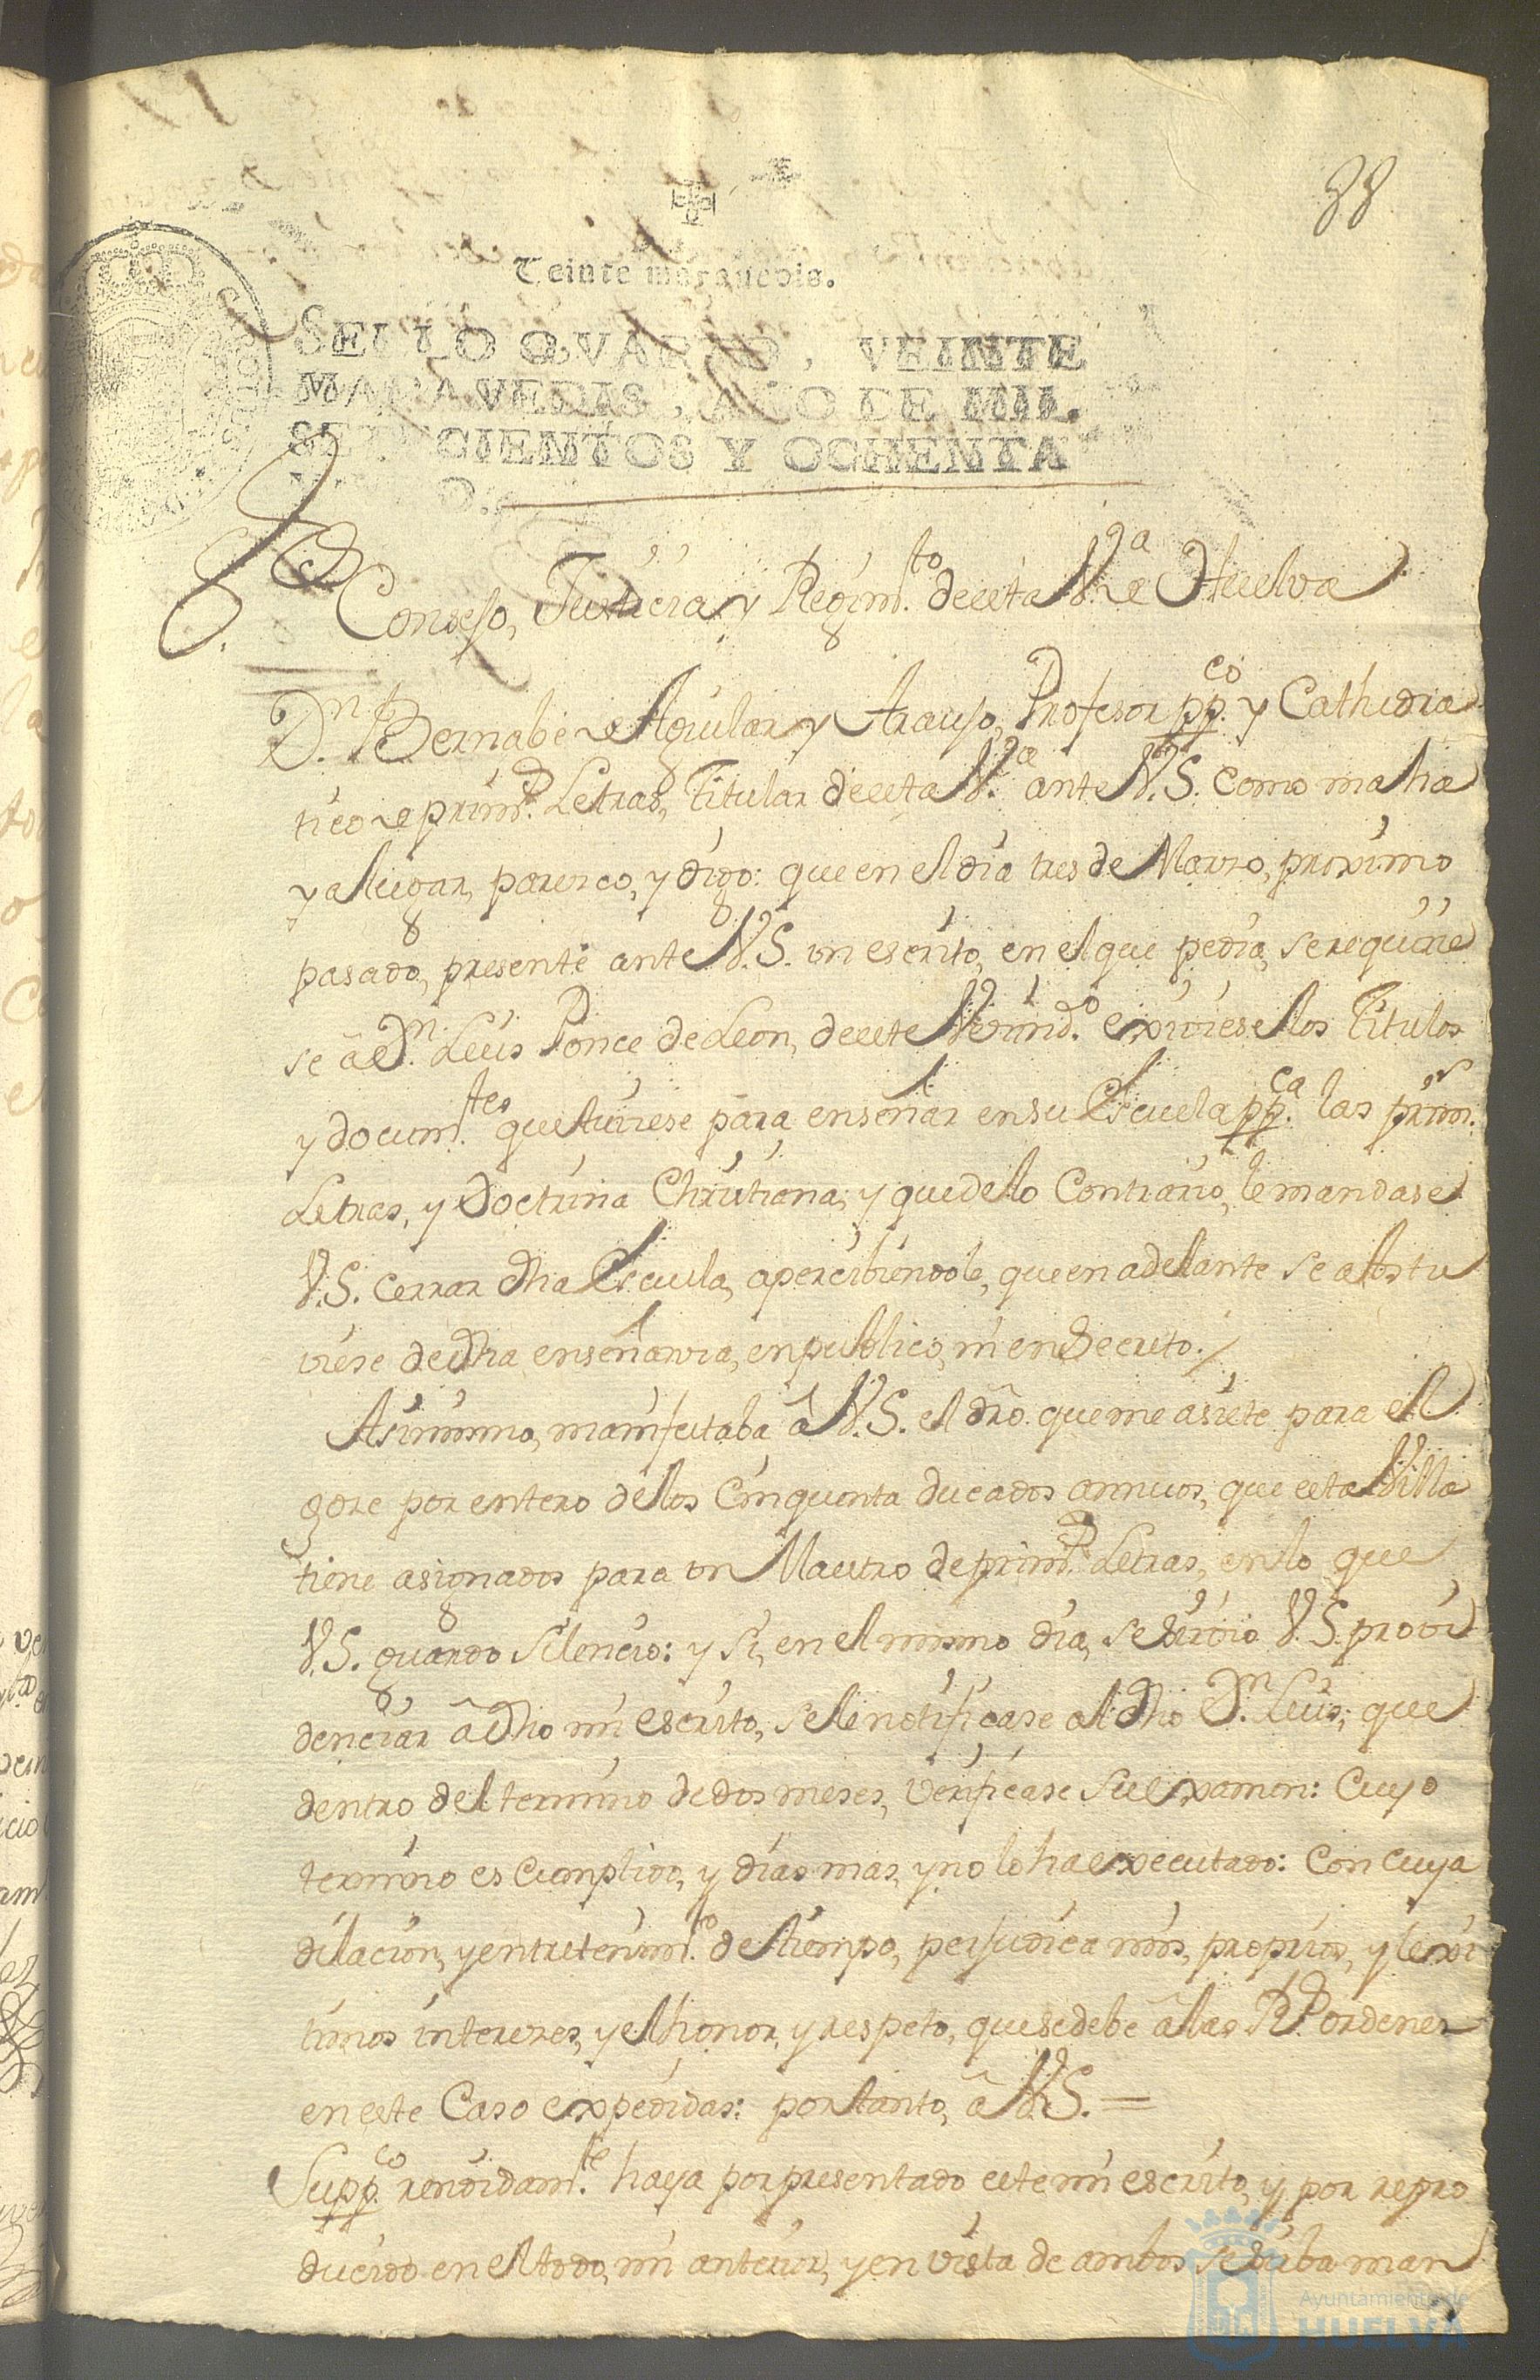 88
Veinte maravedis.
SELLO QVARTO, VEINTE
MARAVEDIS, AÑO DE MIL
SETECIENTOS Y OCHENTA
Consejo, Justicia, y Regim.to de esta V.a de Huelva
D.n Bernabe de Aguilar y Araujo, Profesor pp.co y Cathedra
tico de prim.s Letras, Titular de esta V.a ante V.S. como mas ha
ya lugar, parezco, y digo: que en el dia tres de Marzo, proximo
pasado, presentè ante V.S. un escrito, en el que pedia, se requirie
se â D.n Luis Ponce de Leon, de este Vecind.o exiviese los Titulos
y docum.tos que tuviese para enseñar en su Escuela pp.ca las prim.s
Letras, y Doctrina Christiana; y que de lo Contrario, le mandase
V.S. cerrar dha Escuela, apercibiendole, que en adelante se abstu
viese de dha enseñanza, en publico, ni en Secreto.
Asimismo, manifestaba â V.S. el dro. que me asiste para el
goze por entero de los Cinquenta ducados annuos, que esta Villa
tiene asignados para un Maestro de prim.s Letras, en lo que
V.S. guardo Silencio: y si, en el mismo dia, se sirvio V.S. provi
denciar â dho mi escrito, se le notificase al dho D.n Luis; que
dentro del termino de dos meses, verificase su examen: Cuyo
termino es Cumplido, y dias mas, y no lo ha executado: Con cuya
dilacion, y entretenim.to de tiempo, perjudica mis, propios, y lexi
timos intereses, y el honor, y respeto, que se debe â las R.s ordenes
en este Caso expedidas: por tanto, â V.S. =
Supp.co rendidam.te haya por presentado este mi escrito, y por repro
ducido en el todo, mi anterior, y en vista de ambos se sirba man
Ayuntamiento de
HUELVA